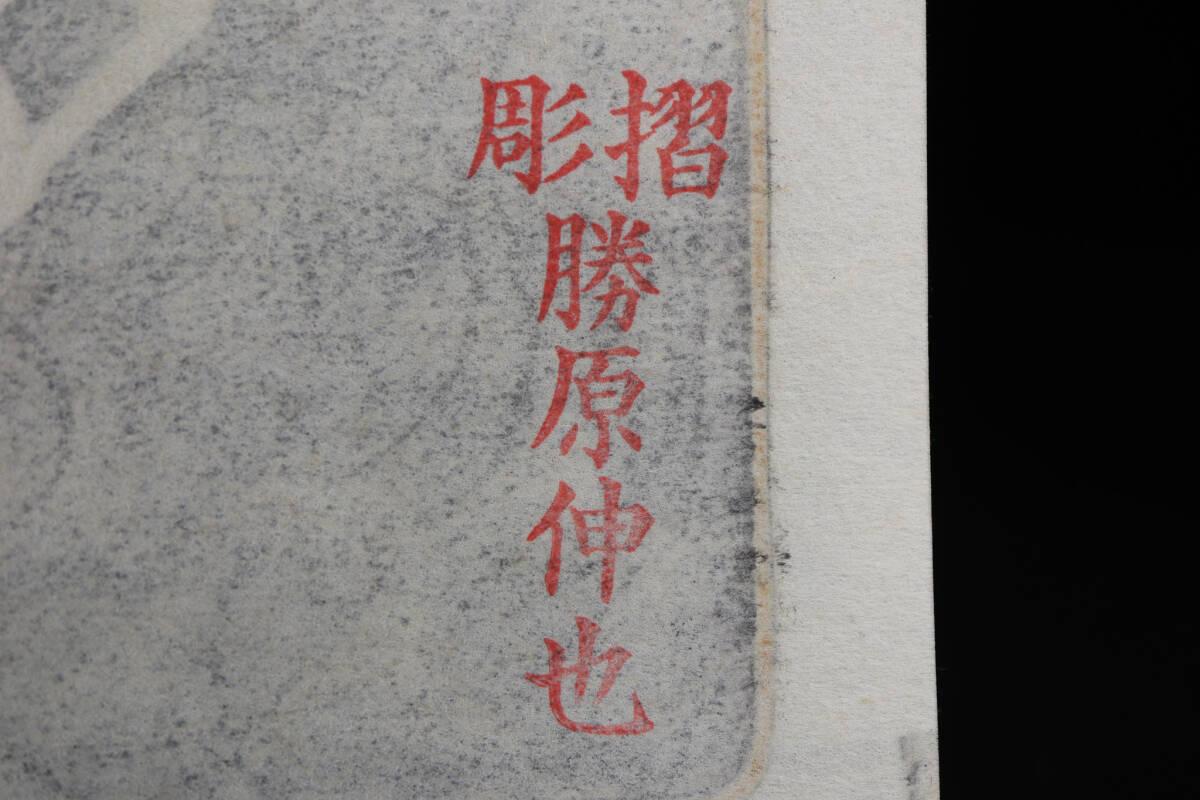 摺彫
勝原伸也